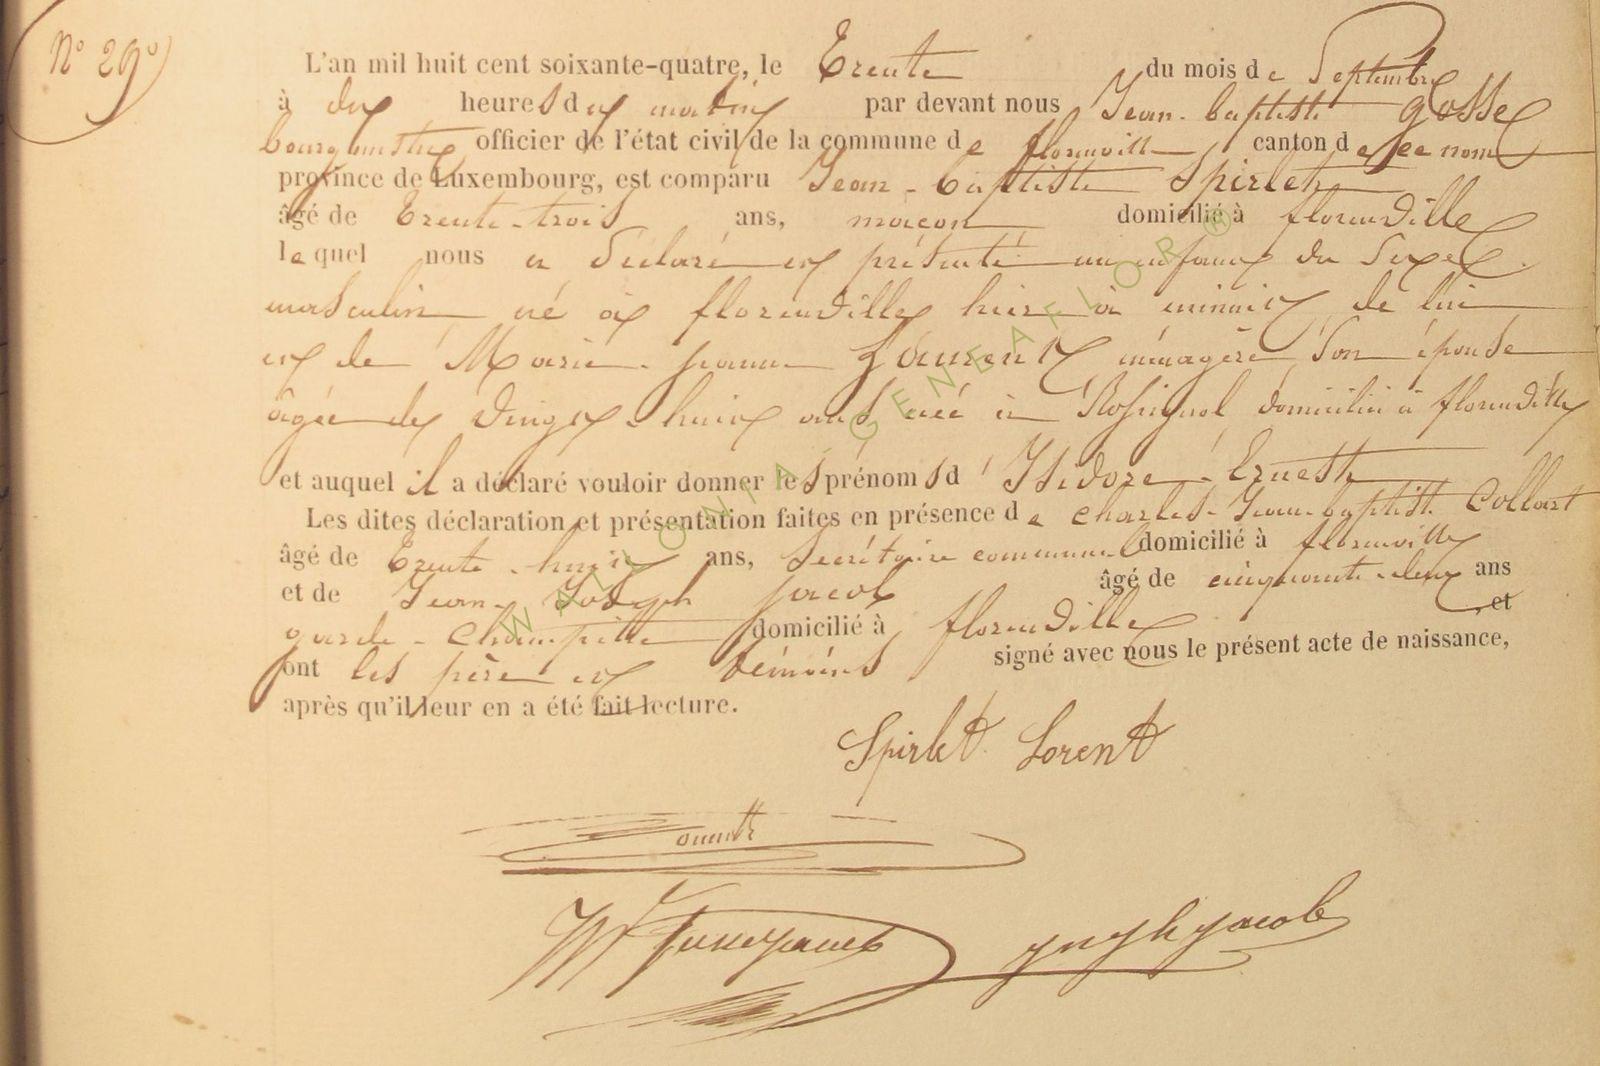 N° 29
L'an mil huit cent soixante-quatre, le Trente du mois de Septembre
à dix heures du matin par devant nous Jean-baptiste gosse
bourgmestre officier de l'état civil de la commune de florenville canton de ce nom
province de Luxembourg, est comparu Jean-baptiste Spirlet
âgé de Trente-trois ans, maçon domicilié à florenville
lequel nous a déclaré et présenté un enfant du Sexe
masculin né à florenville hier à minuit de lui
et de Marie-jeanne Laurent ménagère, Son épouse
âgée de vingt-huit ans née à Rossignol domiciliée à florenville
et auquel il a déclaré vouloir donner les prénoms d'Isidore-Erneste
Les dites déclaration et présentation faites en présence de Charles-Jean-baptiste Collart
âgé de Trente-huit ans, Secrétaire communal domicilié à florenville
et de Jean-Joseph jacob âgé de cinquante-deux ans
garde-champêtre domicilié à florenville, et
ont les père et témoins signé avec nous le présent acte de naissance,
après qu'il leur en a été fait lecture.
Spirlet Lorent
jacob
WALLONIA GENEAFLOR ®